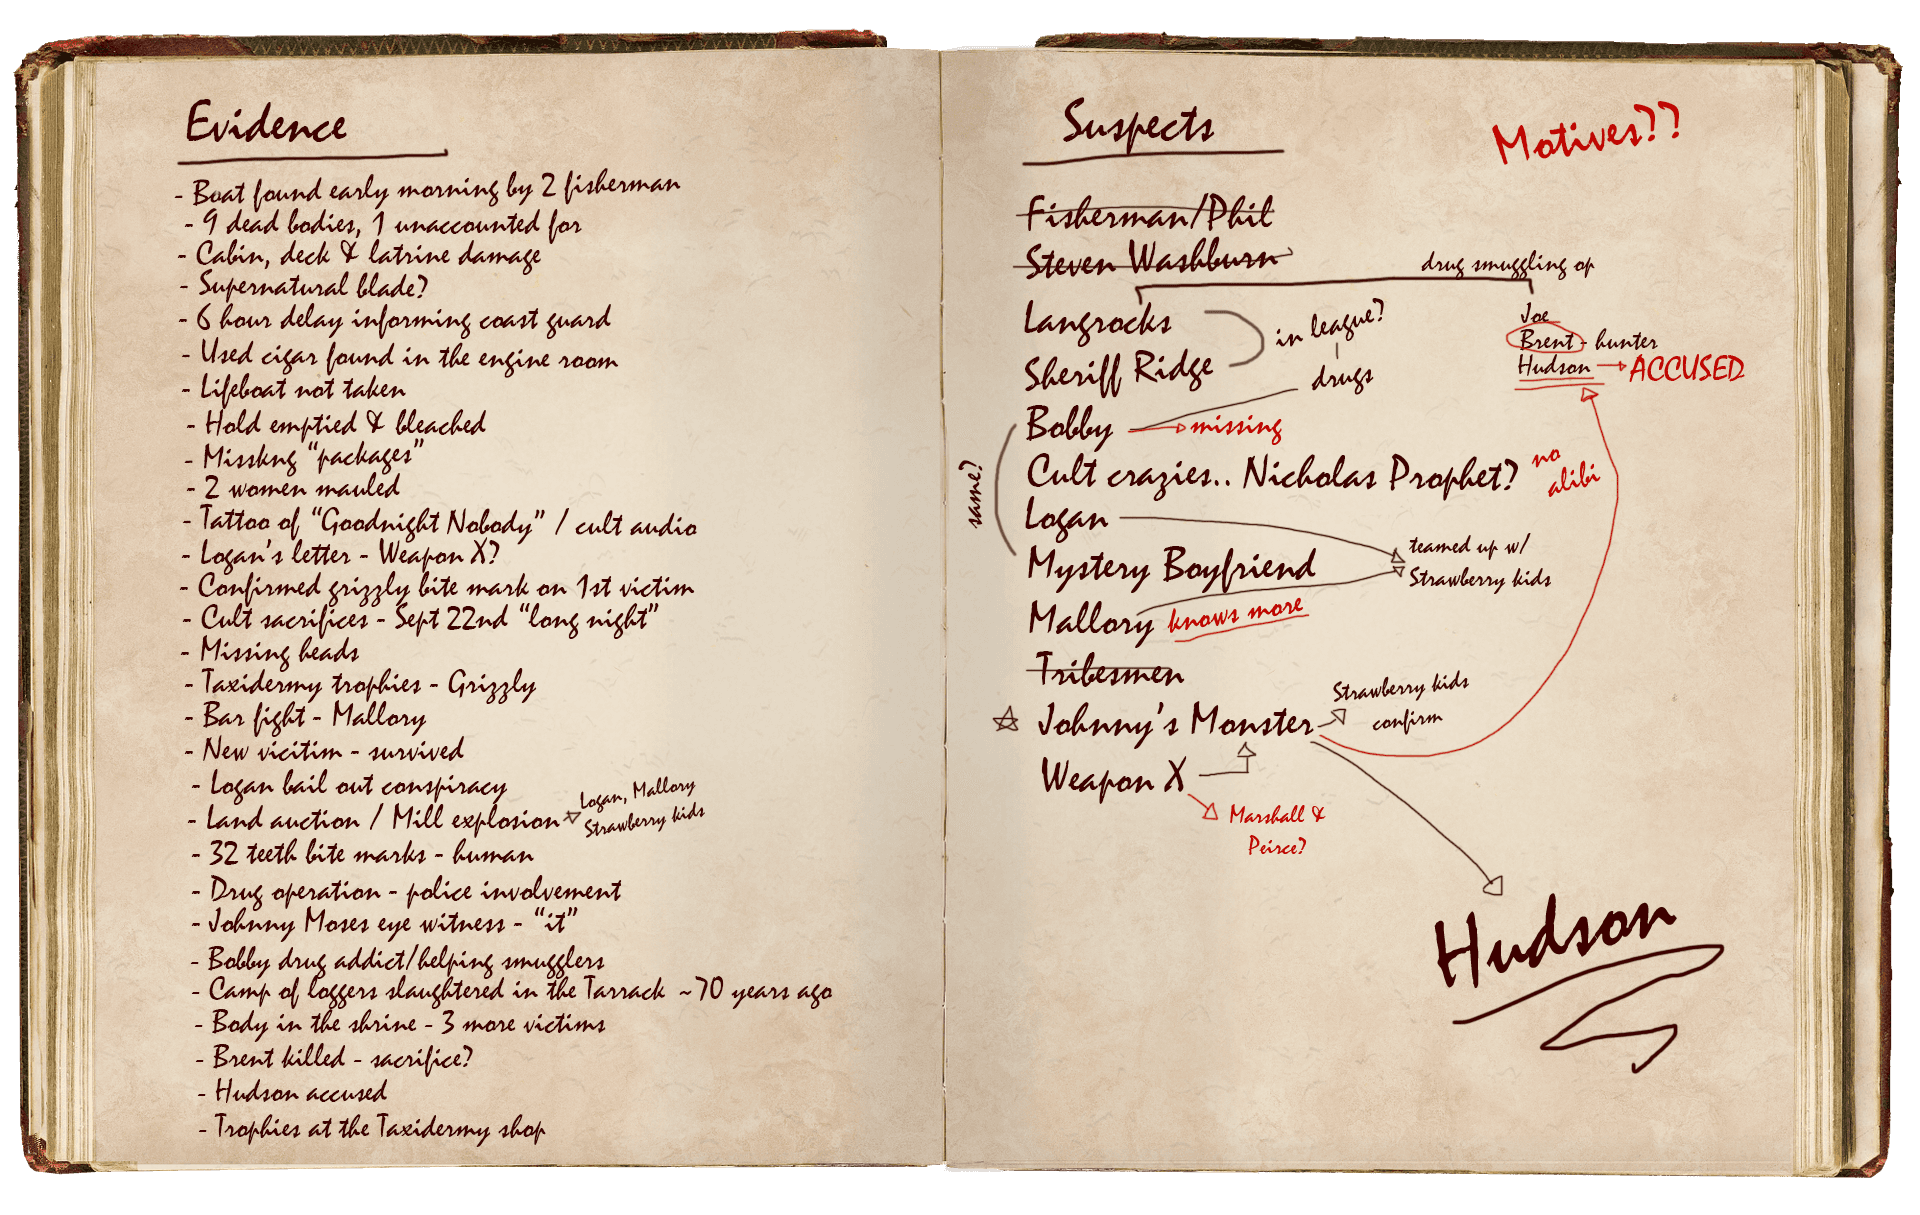 Evidence
- Boat found early morning by 2 fisherman
- 9 dead bodies, 1 unaccounted for
- Cabin, deck & latrine damage
- Supernatural blade?
- 6 hour delay informing coast guard
- Used cigar found in the engine room
- Lifeboat not taken
- Hold emptied & bleached
- Misskng "packages"
- 2 women mauled
- Tattoo of "Goodnight Nobody" / cult audio
- Logan's letter - Weapon X?
- Confirmed grizzly bite mark on 1st victim
- Cult sacrifices - Sept 22nd "long night"
- Missing heads
- Taxidermy trophies - Grizzly
- Bar fight - Mallory
- New vicitim - survived
- Logan bail out conspiracy
- Land auction / Mill explosion
Logan, Mallory
Strawberry kids
- 32 teeth bite marks - human
- Drug operation - police involvement
- Johnny Moses eye witness - "it"
- Bobby drug addict/helping smugglers
- Camp of loggers slaughtered in the Tarrack ~70 years ago
- Body in the shrine - 3 more victims
- Brent killed - sacrifice?
- Hudson accused
- Trophies at the Taxidermy shop
Suspects
Motives??
Fisherman/Phil
Steven Washburn
drug smuggling op
Langrocks
in league?
Joe
Brent - hunter
Hudson
ACCUSED
Sheriff Ridge
drugs
Bobby
missing
same?
Cult crazies.. Nicholas Prophet?
no
alibi
Logan
teamed up w/
Strawberry kids
Mystery Boyfriend
Mallory
knows more
Tribesmen
Johnny's Monster
Strawberry kids
confirm
Weapon X
Marshall &
Peirce?
Hudson